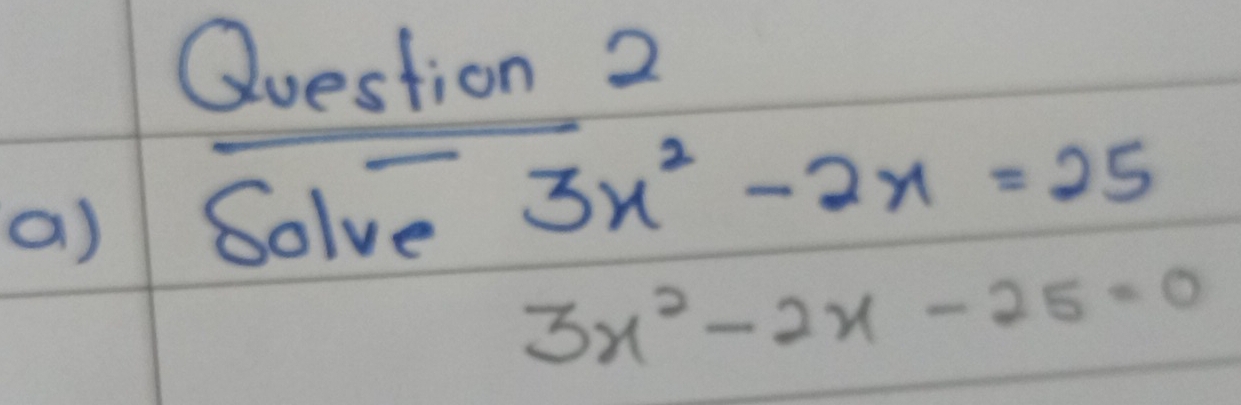 Question 2
a) Solve 3x² - 2x = 25
3x² - 2x - 25 = 0